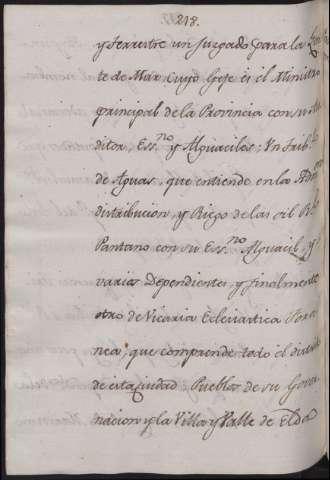 218.
y Terrestre un Juzgado para la Gen
te de Mar Cuyo Gefe es el Ministro
principal de la Provincia con su Au
ditor, Ess.no y Alguaciles: Un Trib.l
de Aguas, que entiende en la Admon
distribucion, y Riego de las del R.l
Pantano con su Ess.no Alguacil, y
varios Dependientes, y finalmente
otro de Vicaria Eclesiastica Fora
nea, que comprende todo el distrito
de esta ciudad Pueblos de su Gover
nacion y la Villa y Valle de Elda